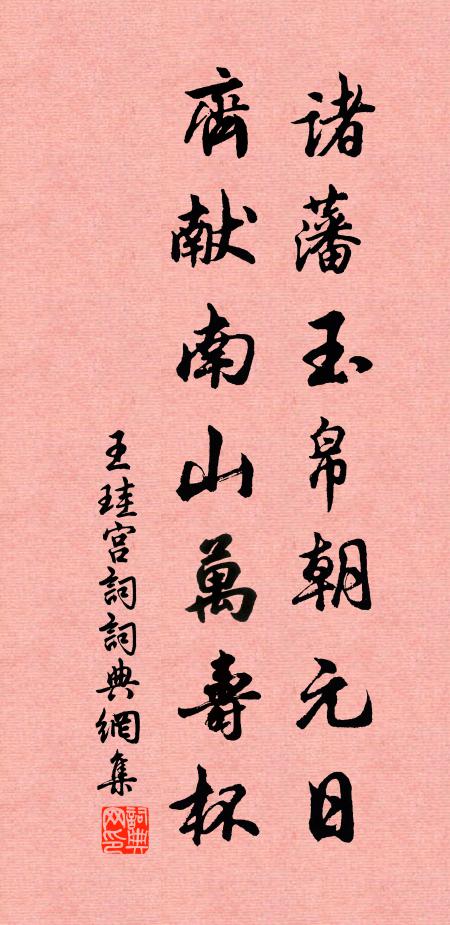 諸藩玉帛朝元日
齊献南山萬壽杯
王珪宮詞詞典網集
詞典
网印